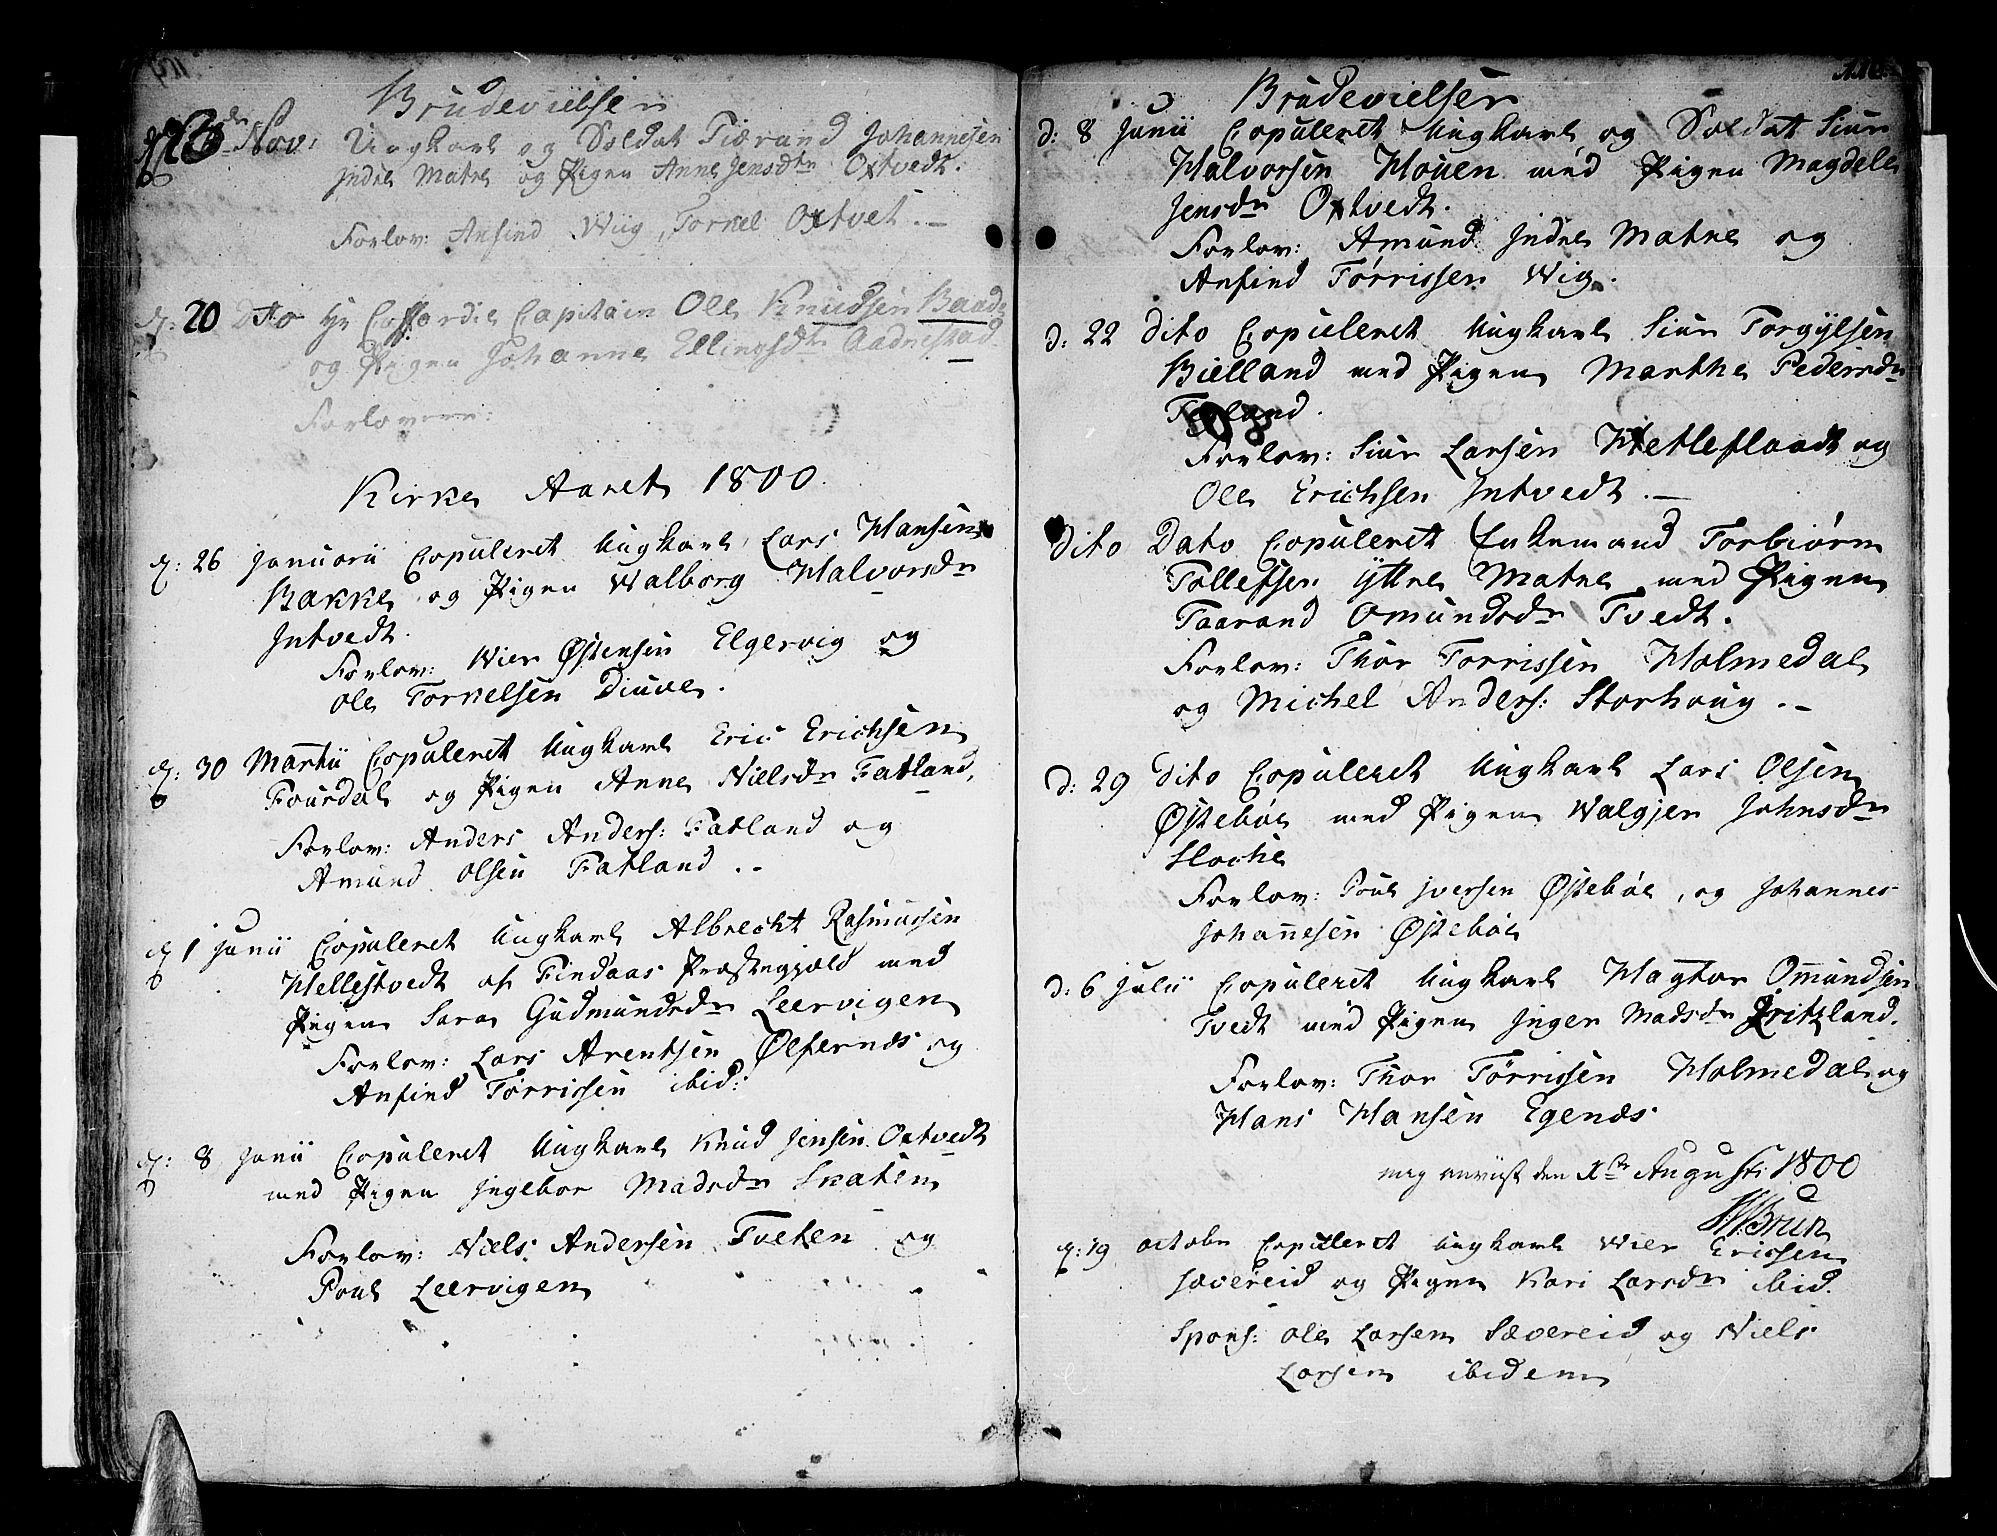 Brudevielser
Nov: Ungkarl og Soldat Tiærand Johannesen
Indre Matre og Pigen Anne Jensdtr Oxtvedt.
Forlov: Anfind Wiig, Torkel Oxtvet.
d: 20 Dito Hr Coffardie Capitain Ole Knudsen Baade
og Pigen Johanne Ellingsdtr Aadnestad
Forlovere:
Kirke Aaret 1800.
d: 26 Januarii Copuleret Ungkarl Lars Hansen
Bakke og Pigen Walborg Halvorsdtr
Intvedt.
Forlov: Wier Østensen Elgervig og
Ole Torkelsen Diuve.
d: 30 Martii Copuleret Ungkarl Eric Erichsen
Fourdal og Pigen Anne Nielsdtr Fatland,
Forlov: Anders Anders: Fatland og
Amund Olsen Fatland.
d 1 Junii Copuleret Ungkarl Albrecht Rasmussen
Hellestvedt af Findaas Præstegjæld med
Pigen Sara Gudmundsdtr Leervigen
Forlov: Lars Arentsen Ølfernæs og
Anfind Tørrissen ibid:
d: 8 Junii Copuleret Ungkarl Knud Jensen Oxtvedt
med Pigen Ingebor Madsdtr Skaten
Forlov: Niels Andersen Tveten og
Poul Leervigen
116.
Brudevielser
d: 8 Junii Copuleret Ungkarl og Soldat Siur
Halvorsen Houen med Pigen Magdele
Jensdtr Oxtvedt.
Forlov: Amund Indre Matre og
Anfind Tørrissen Wig.
d: 22 Dito Copuleret Ungkarl Siur Torgylsen
Bielland med Pigen Marthe Pedersdtr
Forlov: Siur Larsen Hetleflaadt og
Ole Erichsen Intvedt.
Dito Dato Copuleret Enkemand Torbiørn
Tollefsen Yttre Matre med Pigen
Taarand Omundsdtr Tvedt.
Forlov: Thor Torrissen Holmedal
og Michel Anders: Storhoug.
d: 29 Dito Copuleret Ungkarl Lars Olsen
Østebøe med Pigen Walgjer Johnsdtr
Floche
Forlov: Poul Iversen Østebøe, og Johannes
Johannesen Østebøe
d: 6 Julii Copuleret Ungkarl Hagtor Omundsen
Tvedt med Pigen Inger Madsdtr Fritzland.
Forlov: Thor Tørrissen Holmedal og
Hans Hansen Egenæs
den Xde Augusti 1800
Brun
d: 19 octobr Copuleret Ungkarl Wier Ericsen
Sævereid og Pigen Kari Larsdtr ibid.
Spons: Ole Larsen Sævereid og Niels
Larsen ibidem